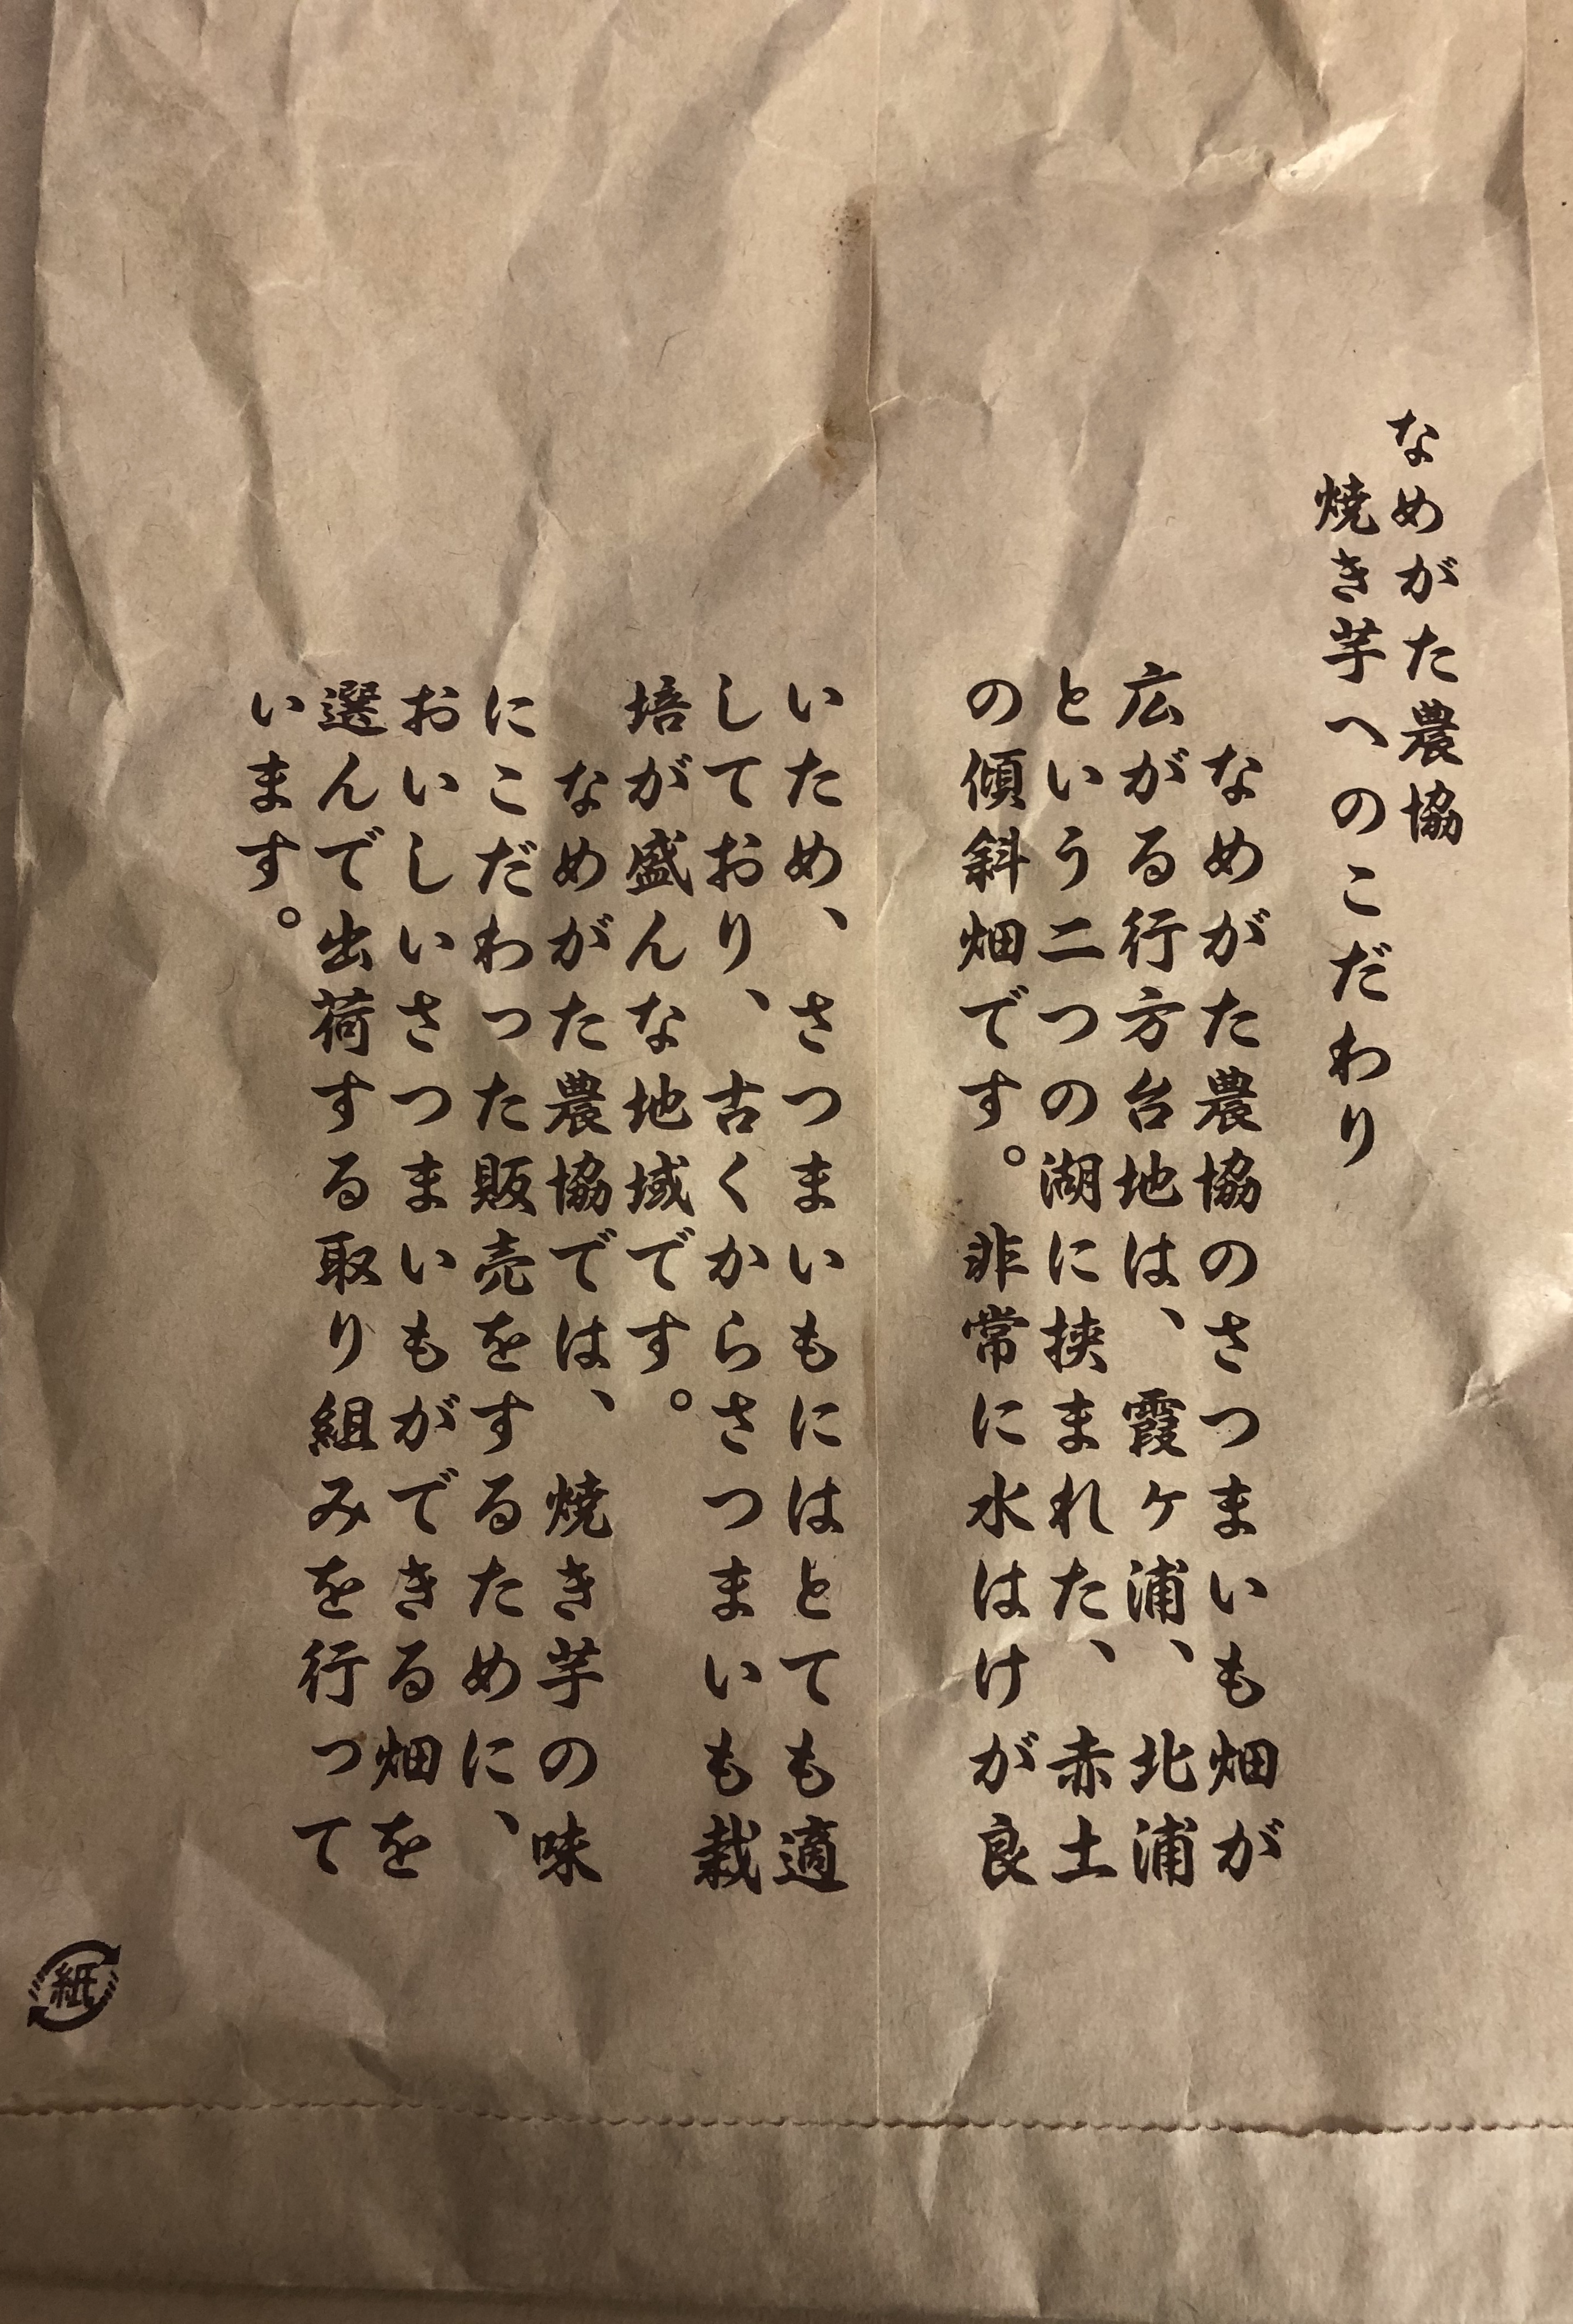 なめがた農協
焼き芋へのこだわり
なめがた農協のさつまいも畑が
広がる行方台地は、霞ヶ浦、北浦
という二つの湖に挟まれた、赤土
の傾斜畑です。非常に水はけが良
いため、さつまいもにはとても適
しており、古くからさつまいも栽
培が盛んな地域です。
なめがた農協では、焼き芋の味
にこだわった販売をするために、
おいしいさつまいもができる畑を
選んで出荷する取り組みを行って
います。
紙